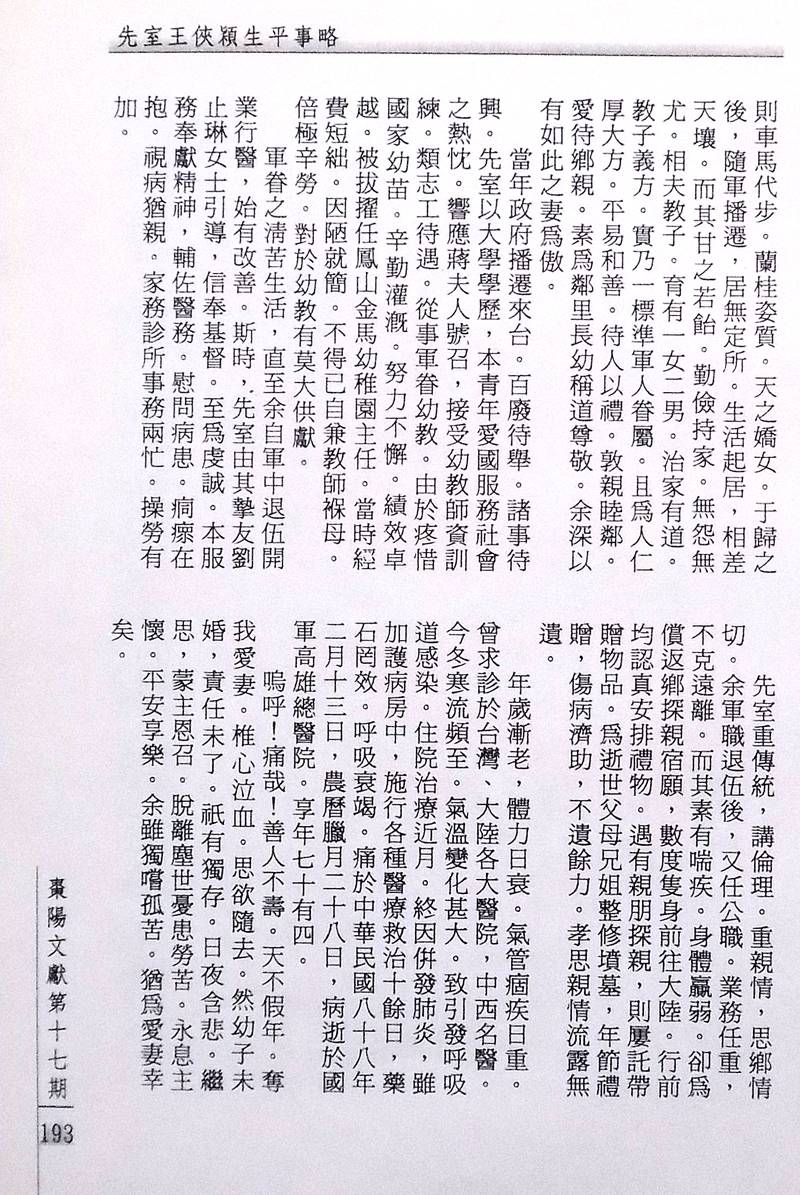 先室王俠潁生平事略
則車馬代步。蘭桂姿質。天之嬌女。于歸之
後，隨軍播遷，居無定所。生活起居，相差
天壤。而其甘之若飴。勤儉持家。無怨無
尤。相夫教子。育有一女二男。治家有道。
教子義方。實乃一標準軍人眷屬。且爲人仁
厚大方。平易和善。待人以禮。敦親睦鄰。
愛待鄉親。素爲鄰里長幼稱道尊敬。余深以
有如此之妻爲傲。
當年政府播遷來台。百廢待舉。諸事待
興。先室以大學學歷，本青年愛國服務社會
之熱忱。響應蔣夫人號召，接受幼教師資訓
練。類志工待遇。從事軍眷幼教。由於疼惜
國家幼苗。辛勤灌漑。努力不懈。績效卓
越。被拔擢任鳳山金馬幼稚園主任。當時經
費短絀。因陋就簡。不得已自兼教師褓母。
倍極辛勞。對於幼教有莫大供獻。
軍眷之淸苦生活，直至余自軍中退伍開
業行醫，始有改善。斯時，先室由其摯友劉
止琳女士引導，信奉基督。至爲虔誠。本服
務奉獻精神，輔佐醫務。慰問病患。痌瘝在
抱。視病猶親。家務診所事務兩忙。操勞有
加。
先室重傳統，講倫理。重親情，思鄉情
切。余軍職退伍後，又任公職。業務任重，
不克遠離。而其素有喘疾。身體羸弱。卻爲
償返鄉探親宿願，數度隻身前往大陸。行前
均認真安排禮物。遇有親朋探親，則屢託帶
贈物品。爲逝世父母兄姐整修墳墓，年節禮
贈，傷病濟助，不遺餘力。孝思親情流露無
遺。
年歲漸老，體力日衰。氣管痼疾日重。
曾求診於台灣、大陸各大醫院，中西名醫。
今冬寒流頻至。氣溫變化甚大。致引發呼吸
道感染。住院治療近月。終因併發肺炎，雖
加護病房中，施行各種醫療救治十餘日，藥
石罔效。呼吸衰竭。痛於中華民國八十八年
二月十三日，農曆臘月二十八日，病逝於國
軍高雄總醫院。享年七十有四。
嗚呼！痛哉！善人不壽。天不假年。奪
我愛妻。椎心泣血。思欲隨去。然幼子未
婚，責任未了。祇有獨存。日夜含悲。繼
思，蒙主恩召。脫離塵世憂患勞苦。永息主
懷。平安享樂。余雖獨嚐孤苦。猶爲愛妻幸
矣。
棗陽文獻第十七期
193